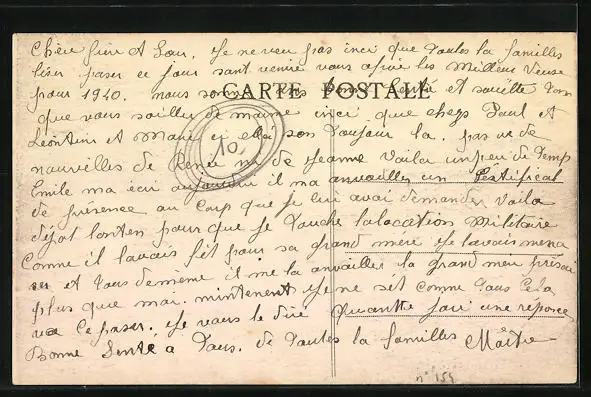 Chère frère et Sœur, Je ne veu pas inci que toutes la familles
liser paser ce jour sant venire vous afrire les Milleur Veuse
pour 1940. nous sommes tous bonne Senté et souëtte Don
CARTE POSTALE
que vous soillier de maime inci que cheys Paul et
Léontine et Marie ci ellé son Toujour la. pas us de
10
nouvelles de Renée ni de Jeanne Voila un peu de Temp
Emile ma écri aujourdui il ma anvoilles un Sértifical
de présence au Corp que je lui avai demander Voila
déjat lonten pour que je Touche lalocation Militaire
Comme il lavais fét pour sa grand mere Je lavais mena
ser et Tous de mème il me la anvailler la grand mère présoi
plus que moi. mintenent Je ne sét comme Tous Cela
va Ce paser. Je vous le diré Quantte jari une réponce
Bonne Sente a Tous. de Toutes la familles Maitre
n° 154